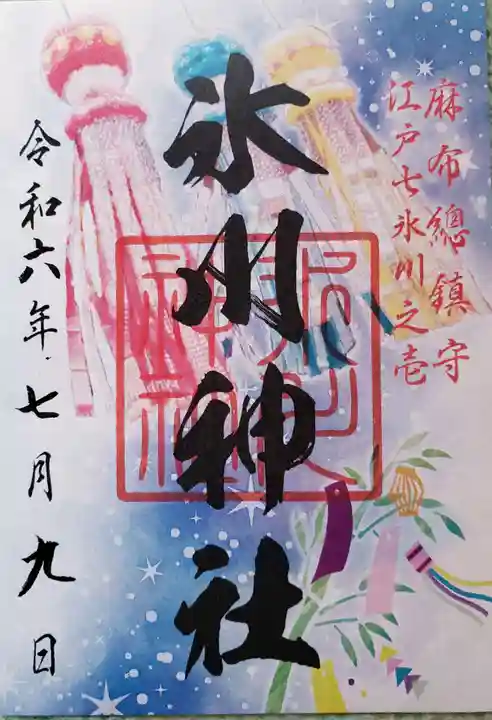 麻布總鎮守
江戸七氷川之壱
氷川神社
氷川神社
令和六年七月九日